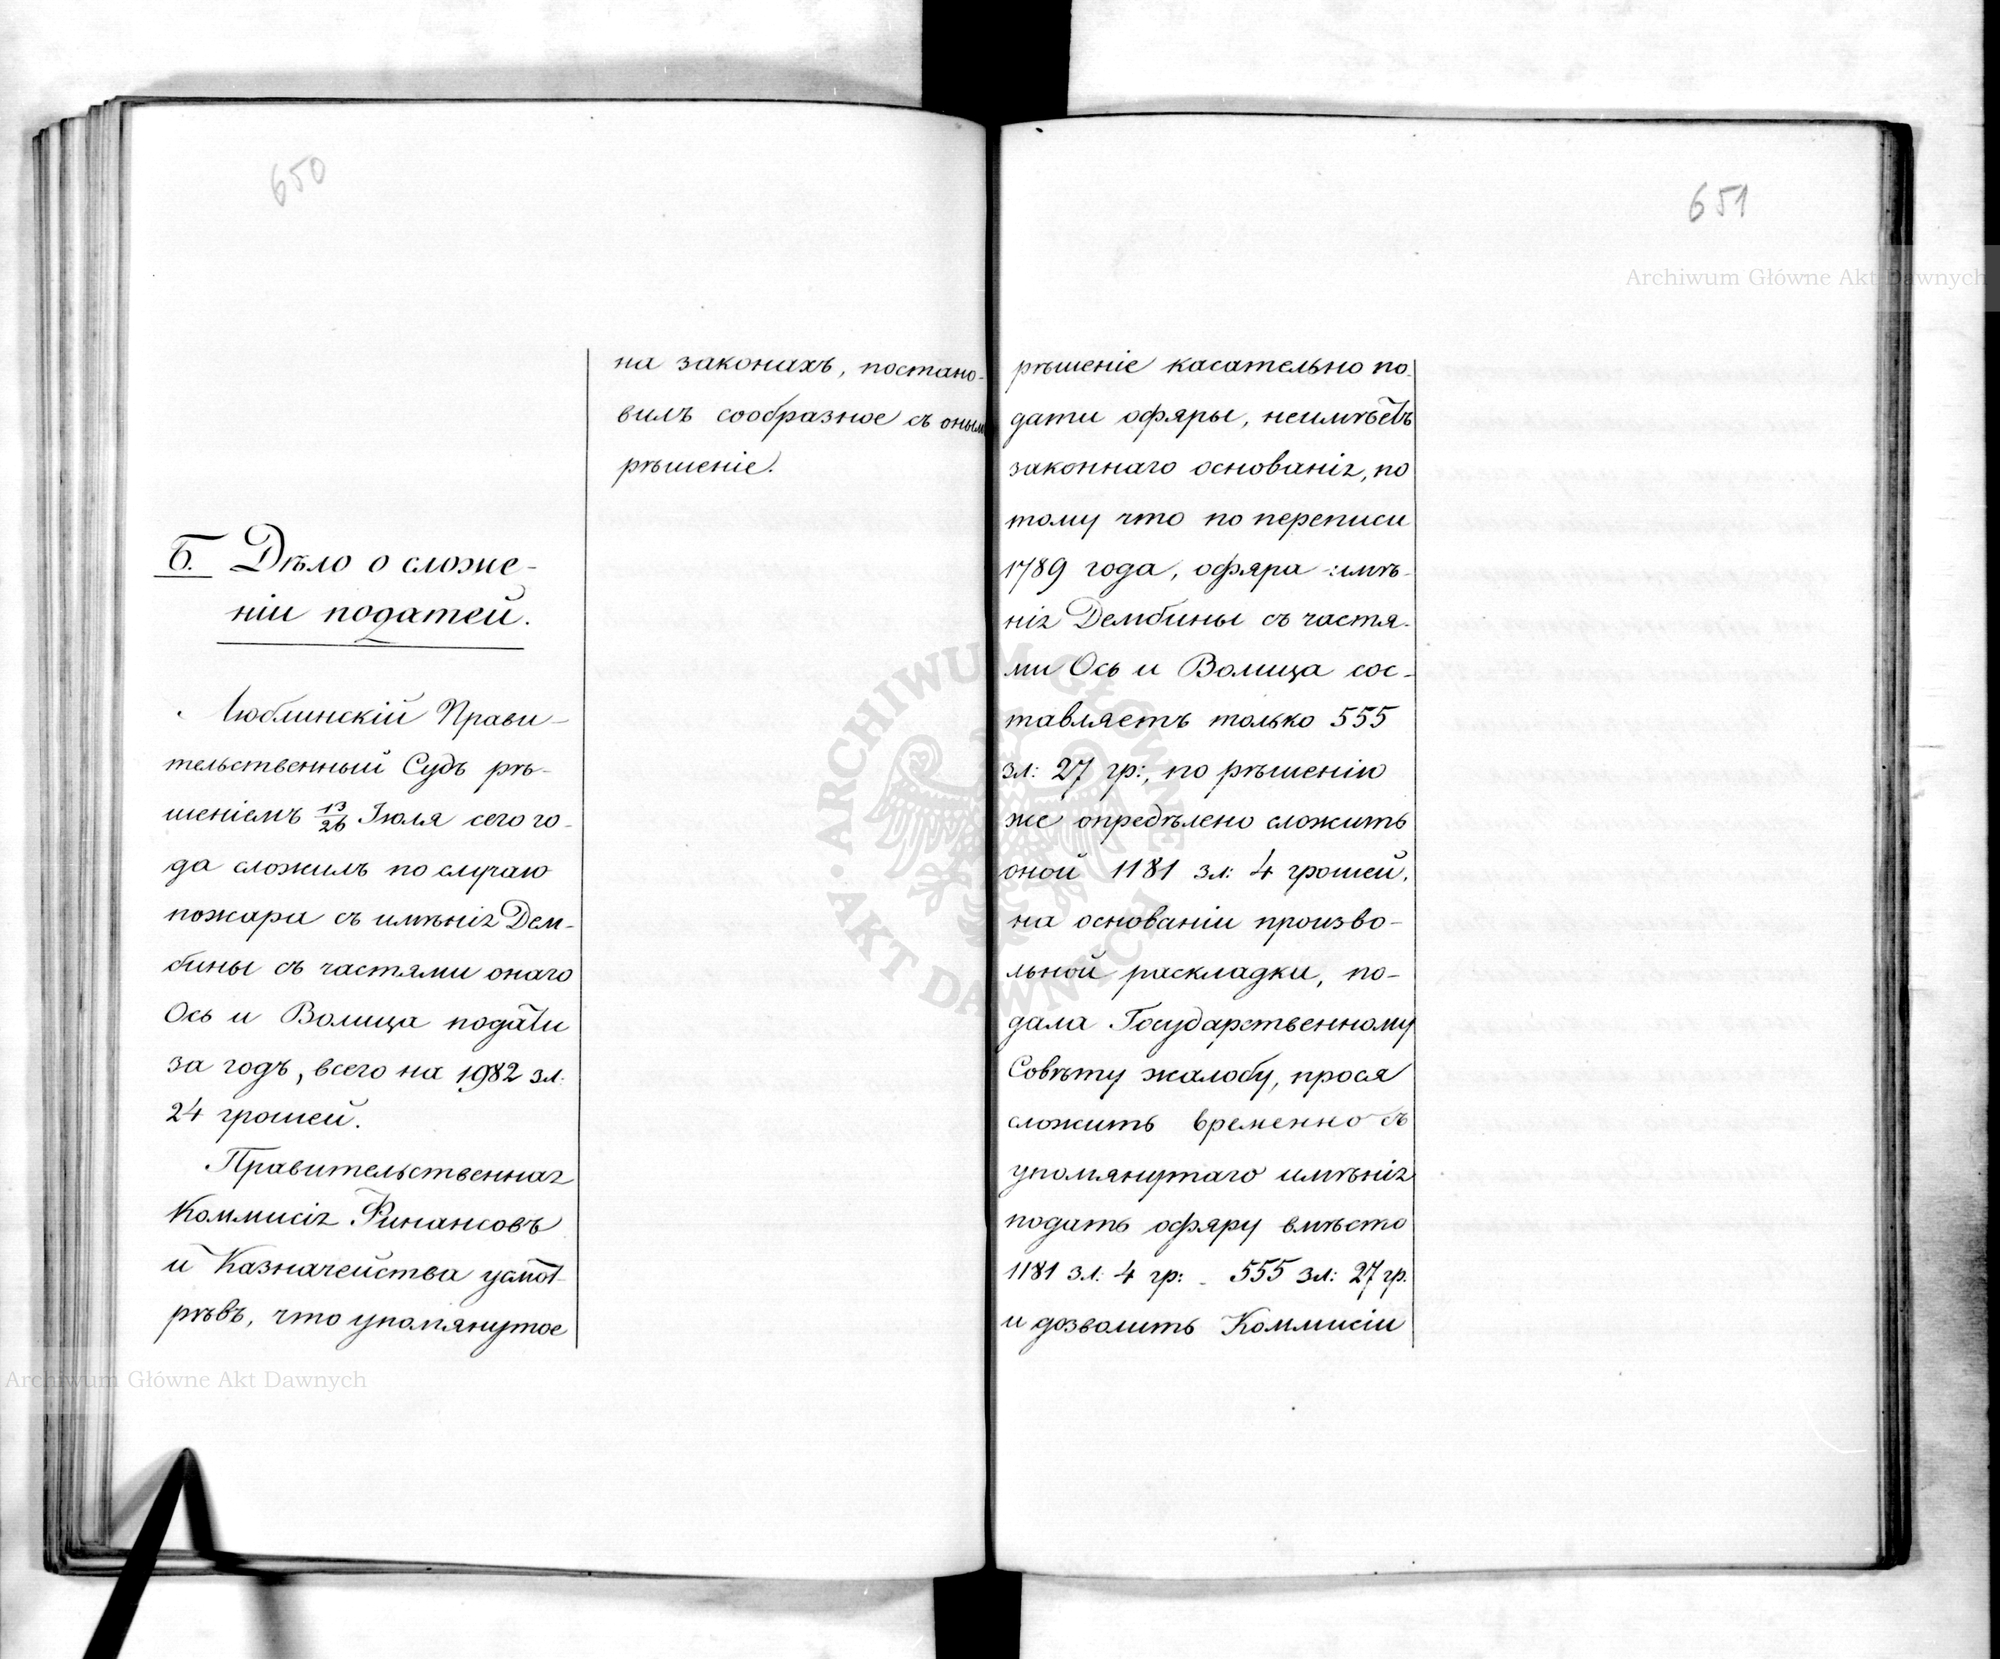 650
на законахъ, постано-
вилъ сообразное съ оным
рѣшеніе.
Б. Дѣло о сложе-
ніи податей.
Люблинскій Прави-
тельственный Судъ рѣ-
шеніемъ 13/26 Іюля сего го-
да сложилъ по случаю
пожара съ имѣнія Дем-
бины съ частями онаго
Ось и Волица подати
за годъ, всего на 1982 зл:
24 грошей.
Правительственная
Коммисія Финансовъ
и Казначейства усмот-
рѣвъ, что упомянутое
651
рѣшеніе касательно по-
дати офяры, неимѣетъ
законнаго основанія, по
тому что по переписи
1789 года, офяра имѣ-
нія Дембины съ частя-
ми Ось и Волица сос-
тавляетъ только 555
зл: 27 гр:, по рѣшенію
же опредѣлено сложить
оной 1181 зл: 4 грошей.
на основаніи произво-
льной раскладки, по-
дала Государственному
Совѣту жалобу, прося
сложить временно съ
упомянутаго имѣнія
подать офяру вмѣсто
1181 зл: 4 гр: - 555 зл: 27 гр.
и дозволить Коммисіи
Archiwum Główne Akt Dawnych
Archiwum Główne Akt Dawnych
ARCHIWUM GŁÓWNE AKT DAWNYCH